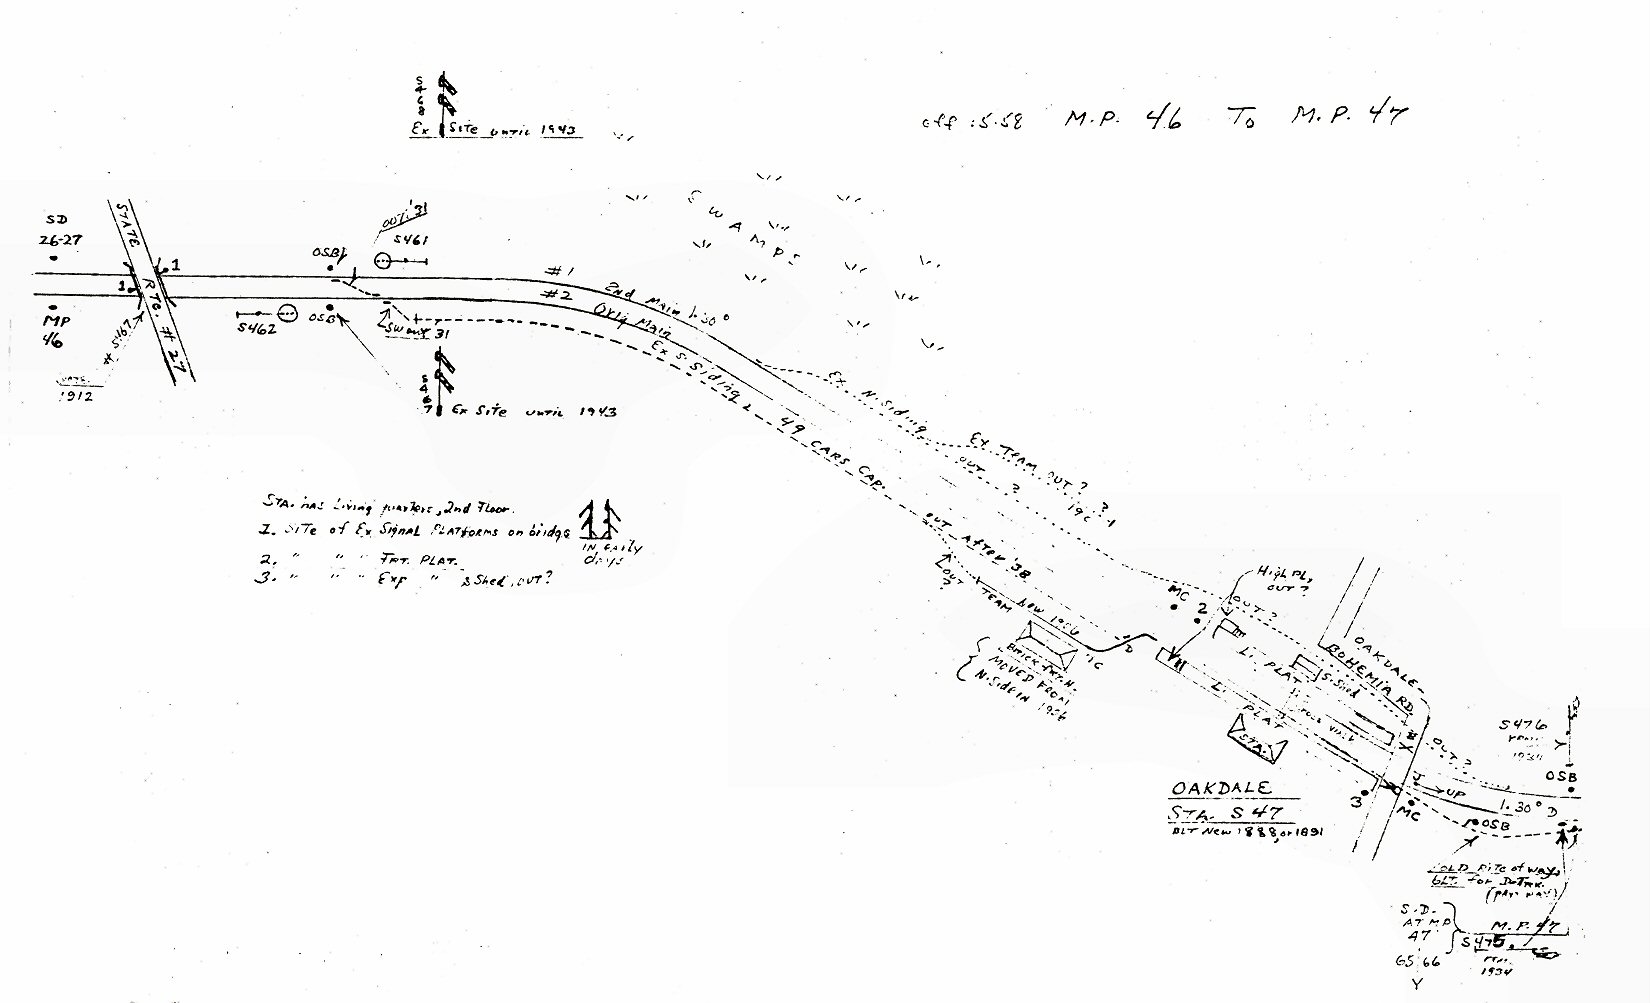 S
4
6
8
Ex Site until 1943
eff :5.58 M.P. 46 To M.P. 47
SWAMPS
SD
26-27
STATE RTE. #27
1
1
OSB
OUT '31
S461
#1
#2
2nd Main 1.30°
Orig Main
MP
46
S462
OSB
SW out 31
# S467
1912
S
4
6
7
Ex Site until 1943
Ex S. Siding
49 CARS CAP.
Ex. N. Siding
OUT ?
Ex. TEAM OUT ?
OUT AFTER '38
OUT
?
TEAM
1956
STA. has Living quarters, 2nd Floor.
1. SITE of Ex Signal PLATFORMS on bridge
IN EARLY
days
2. " " " FRT. PLAT.
3. " " " Exp " & Shed, OUT?
High PL,
OUT ?
MC
2
OUT ?
D
BRICK FRT. H.
MOVED FROM
N. Side IN 1956
L. PLAT
S. Shed
L. PLAT
STA.
OAKDALE-
BOHEMIA RD.
OUT ?
OAKDALE
STA. S 47
BLT New 1888, or 1891
3
MC
UP
S476
1934
Y
OSB
1.30° D
OSB
OLD Rite of way,
blt. for D. Trk.
S.D.
AT MP
47
65 66
Y
M.P. 47
S475
1934